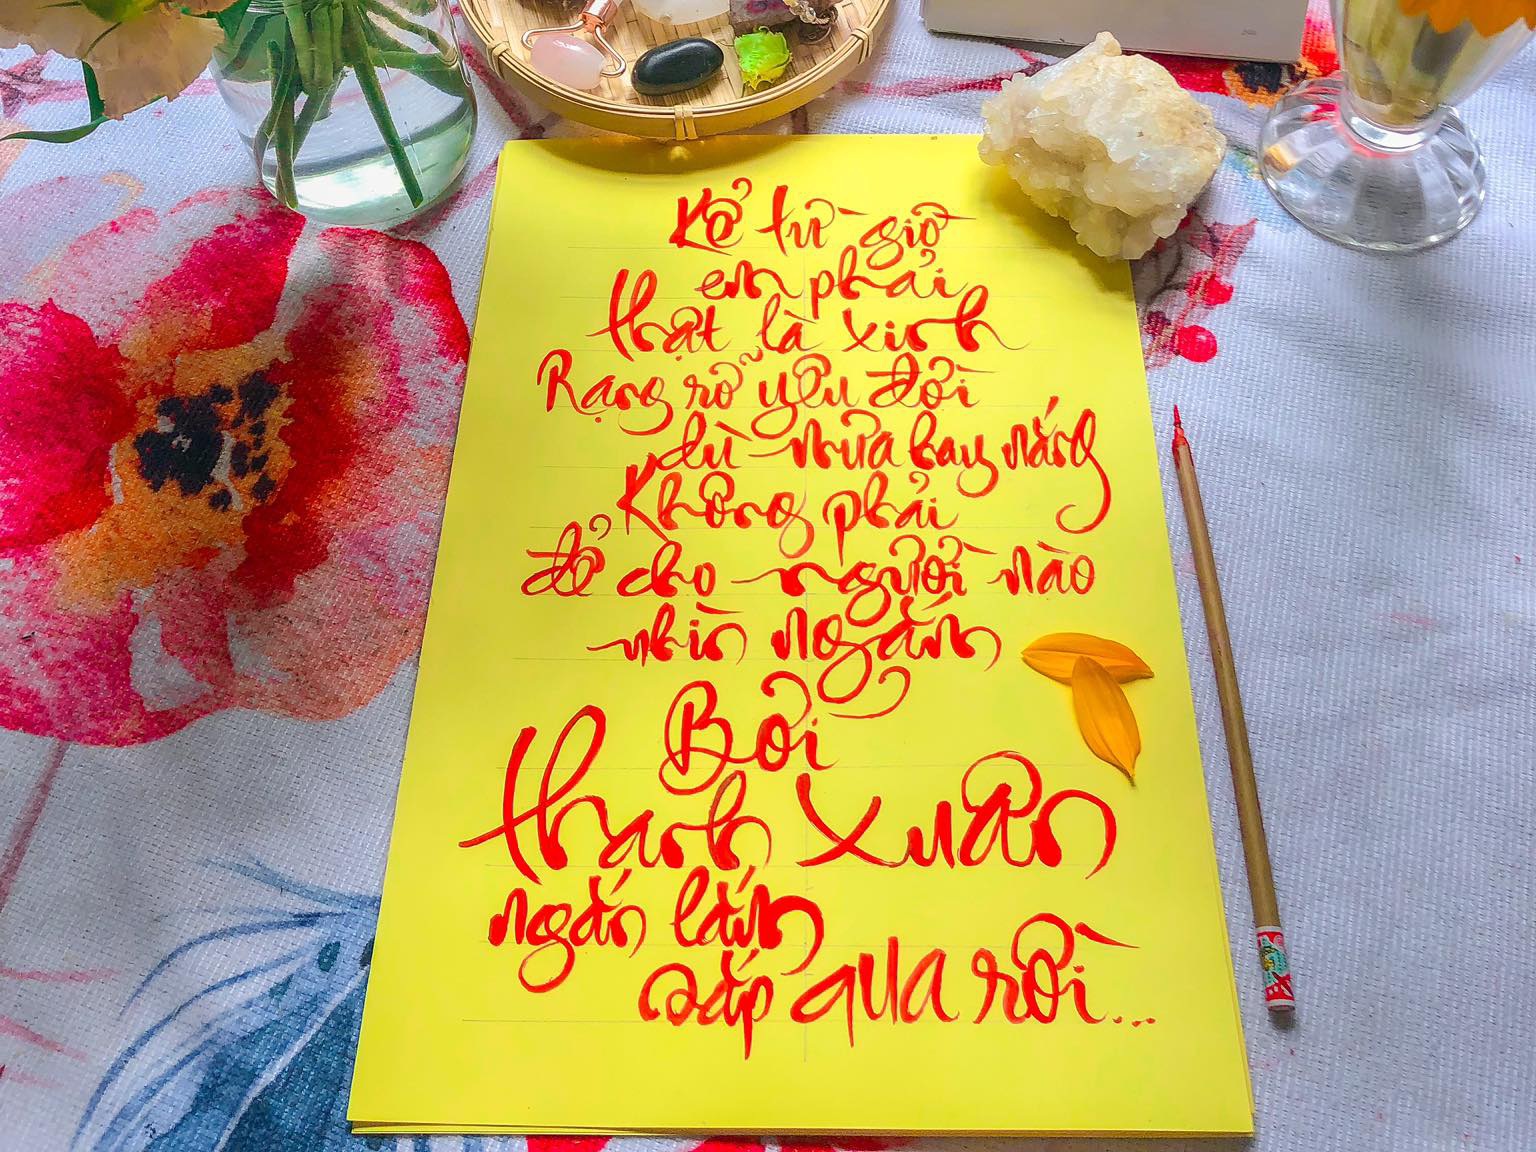 Kể từ giờ
em phải
thật là xinh
Rạng rỡ yêu đời
dù mưa hay nắng
Không phải
để cho người nào
nhìn ngắm
Bởi
thanh xuân
ngắn lắm
sắp qua rồi...